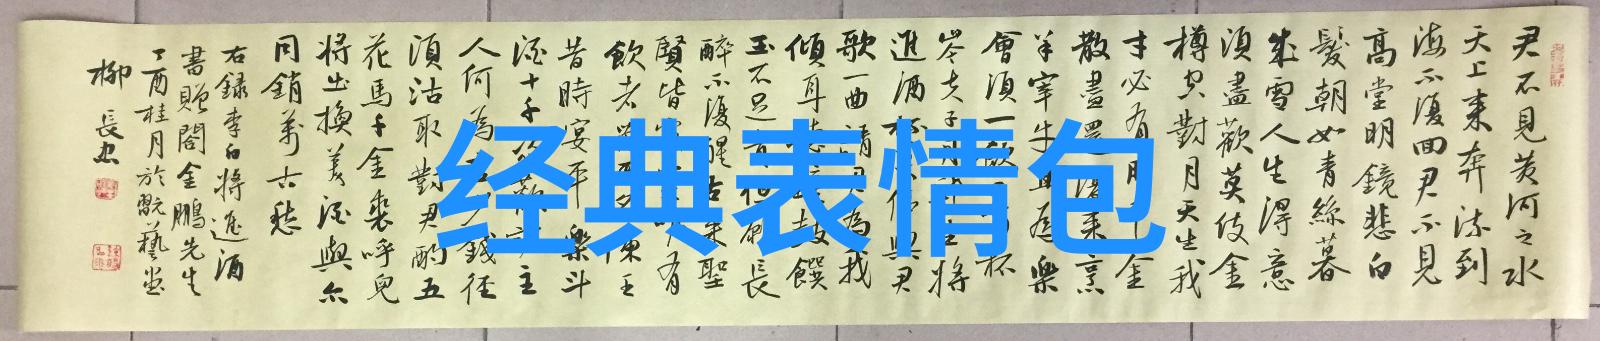 君不見黃河之水
天上来奔流到
海不復回君不見
高堂明鏡悲白
髮朝如青絲暮
成雪人生得意
須盡歡莫使金
樽空對月天生我
才必有用千金
散盡還復来烹
羊宰牛且為樂
會須一飲三百杯
岑夫子丹丘生將
進酒杯莫停與君
歌一曲請君為我
傾耳聽鼓饌
玉不足貴但願長
醉不復醒古来聖
賢皆有
飲者陳王
昔時宴平樂斗
酒十千恣歡主
人何為言少錢徑
須沽取對君酌五
花馬千金裘呼兒
將出換美酒與尔
同銷萬古愁
右録李白將進酒
書贈閻金鵬先生
丁酉桂月於翫藝堂
柳長忠
经典表情包